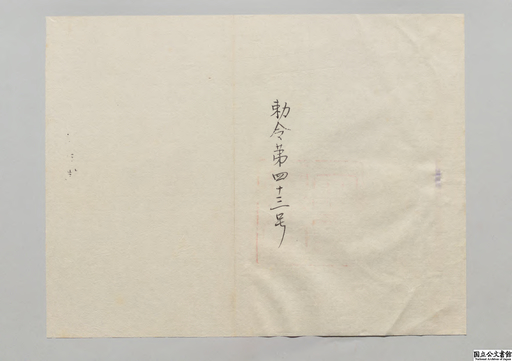 勅令第四十三号
国立公文書館
National Archives of Japan